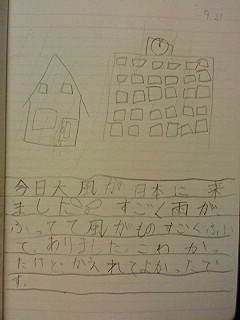 9.21
今日大風が日本に来
ました。すごく雨が
ふってて風がものすごくふい
て、ありました。こわかっ
たけどかえれてよかったで
す。